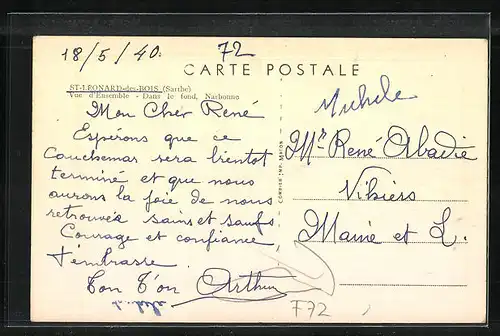 18/5/40.
72
CARTE POSTALE
ST-LÉONARD-des-BOIS (Sarthe)
Vue d'Ensemble - Dans le fond, Narbonne
Mon Cher René
Espérons que ce
Cauchemar sera bientot
terminé et que nous
aurons la joie de nous
retrouver sains et saufs
Courage et confiance,
t'embrasse.
Ton T'on Arthur
Michele
Mr René Abadie
Vihiers
Maine et L.
F72